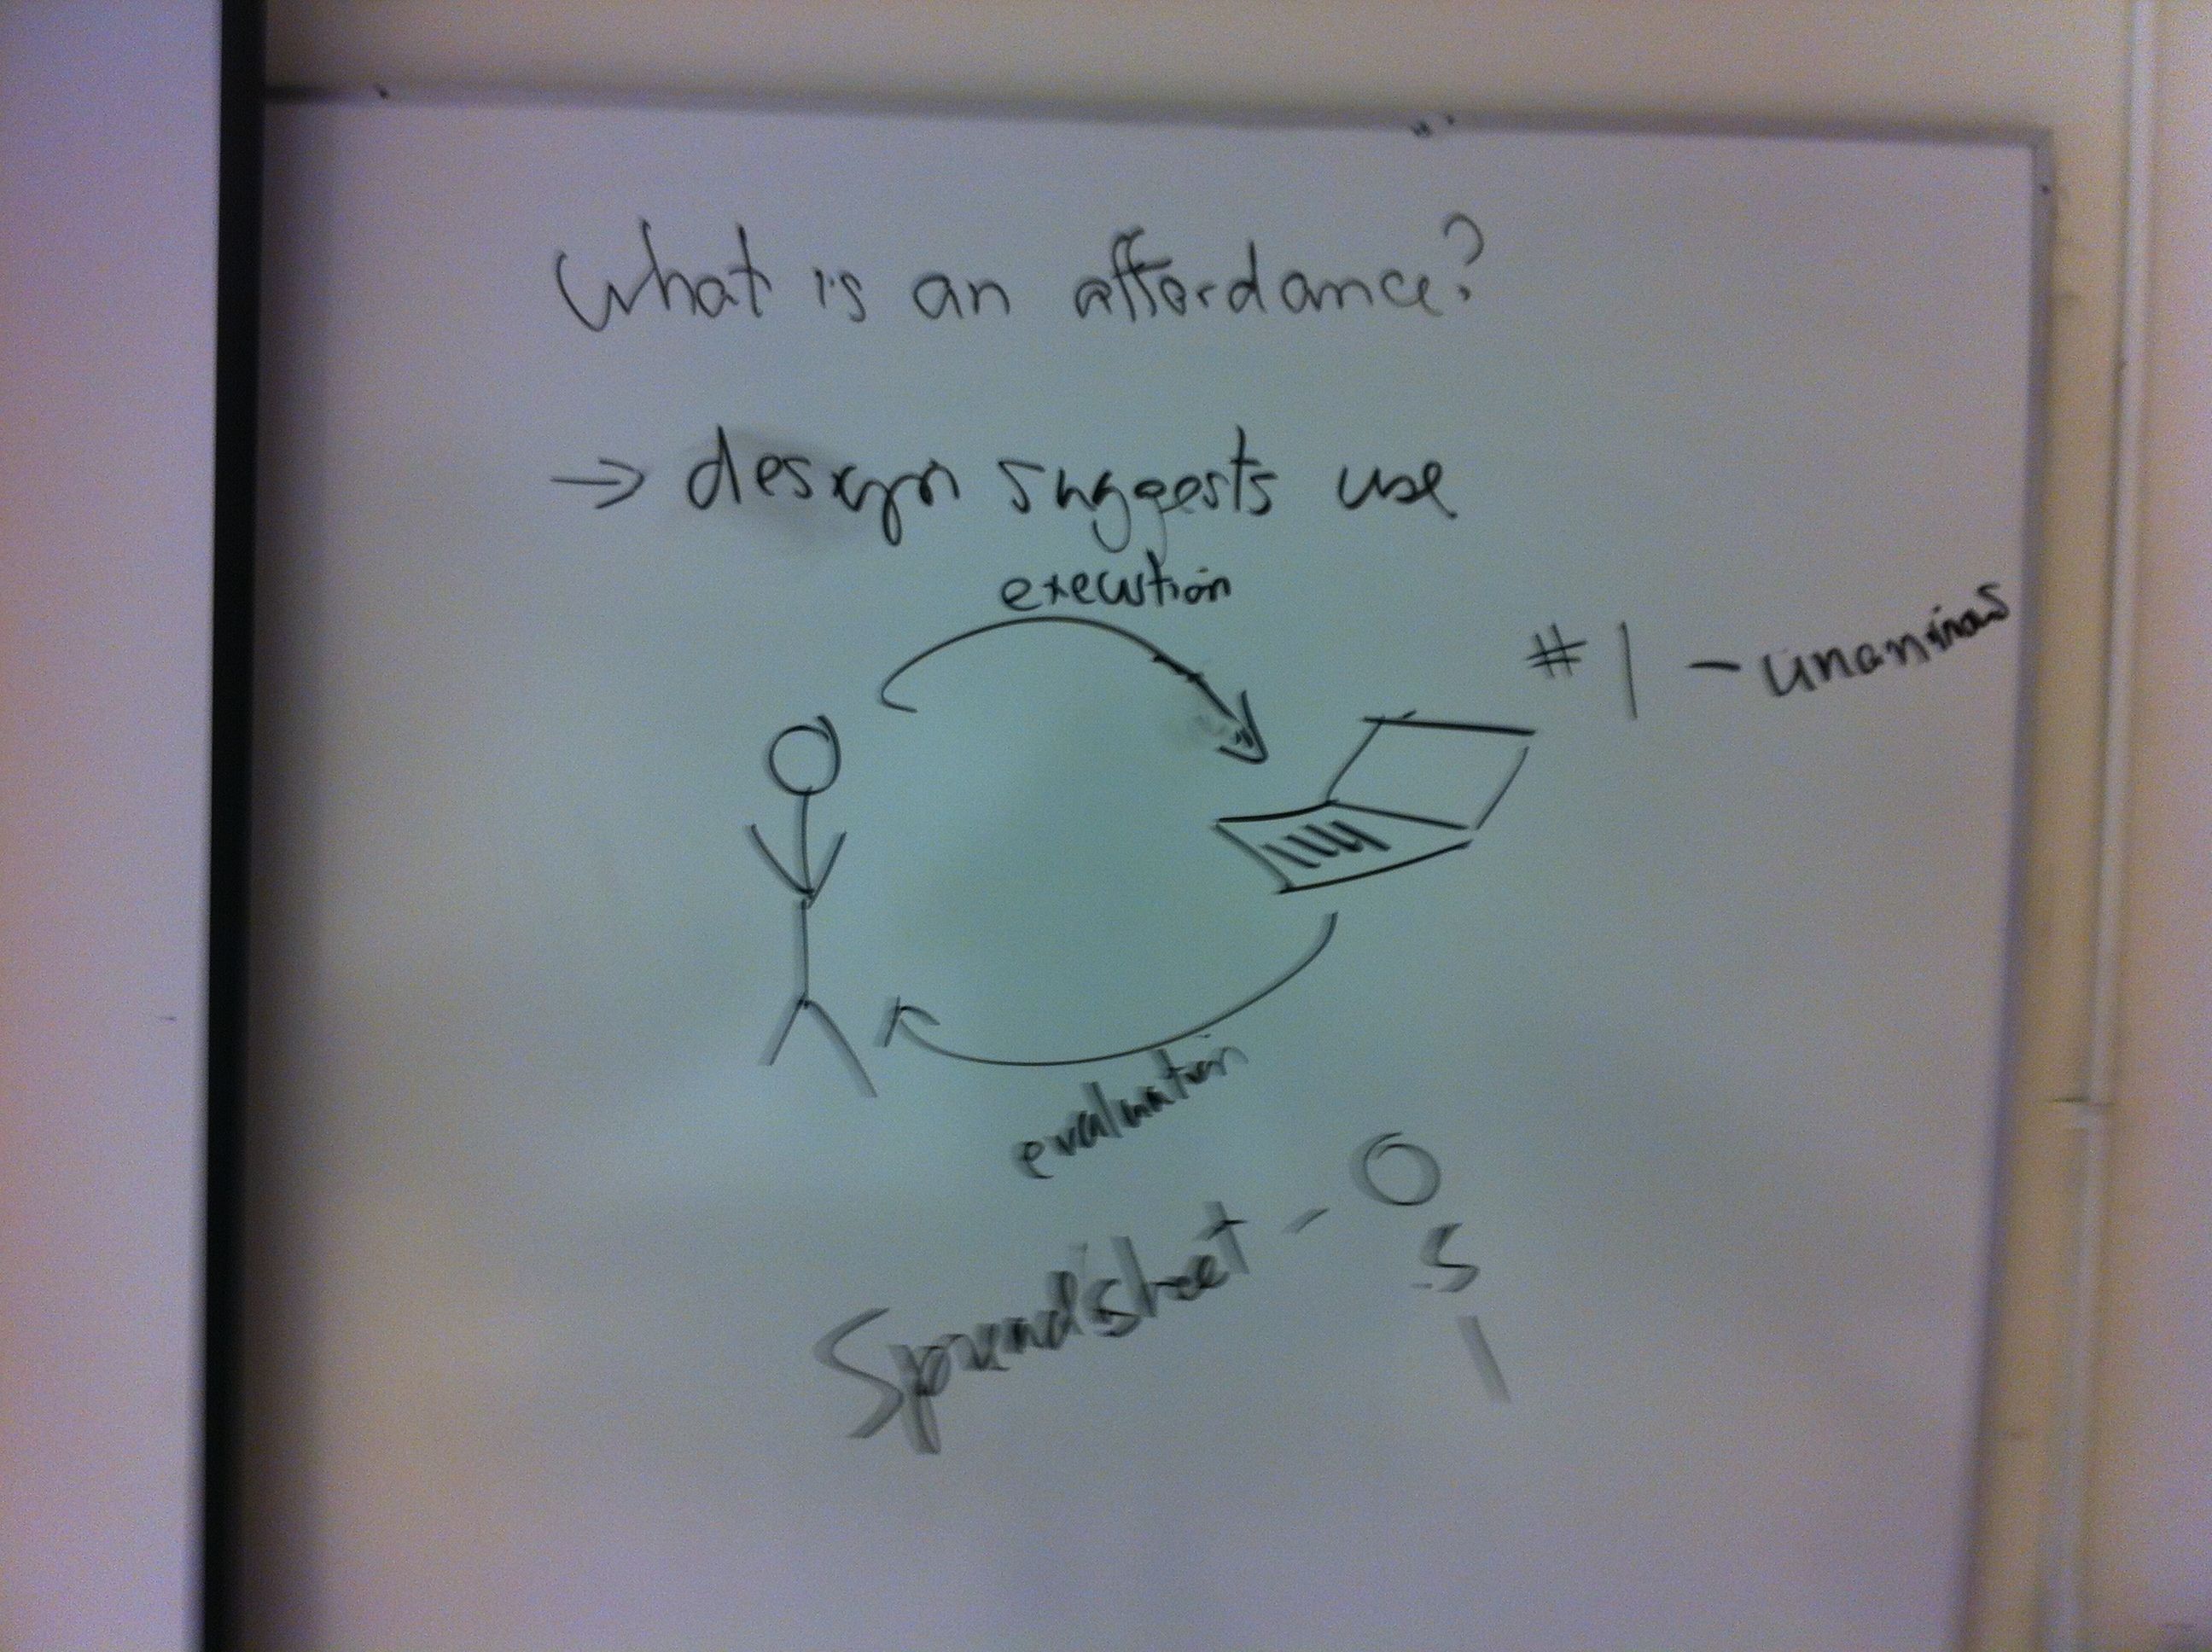 What is an affordance?
→ design suggests use
execution
#1 -
evaluation
Spreadsheet - O
S
1